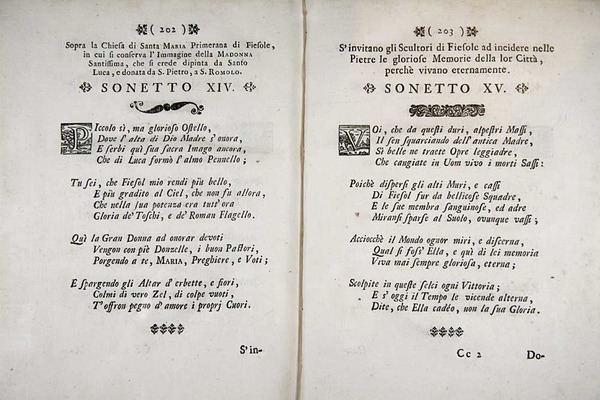 ( 202 )
Sopra la Chiesa di Santa MARIA Primerana di Fiesole,
in cui si conserva l'Immagine della MADONNA
Santissima, che si crede dipinta da Santo
Luca, e donata da S. Pietro, a S. ROMOLO.
SONETTO XIV.
PIccolo sì, ma glorioso Ostello,
Dove l'alta di Dio Madre s'onora,
E serbi quì sua sacra Imago ancora,
Che di Luca formò l'almo Pennello;
Tu sei, che Fiesol mio rendi più bello,
E più gradito al Ciel, che non fu allora,
Che nella sua potenza era tutt'ora
Gloria de' Toschi, e de' Roman Flagello.
Quì la Gran Donna ad onorar devoti
Vengon con piè Donzelle, i buon Pastori,
Porgendo a te, MARIA, Preghiere, e Voti;
E spargendo gli Altar d'erbette, e fiori,
Colmi di vero Zel, di colpe vuoti,
T'offron pegno d'amore i proprj Cuori.
S'in-
( 203 )
S'invitano gli Scultori di Fiesole ad incidere nelle
Pietre le gloriose Memorie della lor Città,
perchè vivano eternamente.
SONETTO XV.
VOi, che da questi duri, alpestri Massi,
Il sen squarciando dell'antica Madre,
Sì belle ne traete Opre leggiadre,
Che cangiate in Uom vivo i morti Sassi:
Poichè dispersi gli alti Muri, e cassi
Di Fiesol fur da bellicose Squadre,
E le sue membra sanguinose, ed adre
Miransi sparse al Suolo, ovunque vassi;
Acciocchè il Mondo ognor miri, e discerna,
Qual si foss' Ella, e quì di lei memoria
Viva mai sempre gloriosa, eterna;
Scolpite in queste selci ogni Vittoria;
E s'oggi il Tempo le vicende alterna,
Dite, che Ella cadéo, non la sua Gloria.
Cc 2
Do-